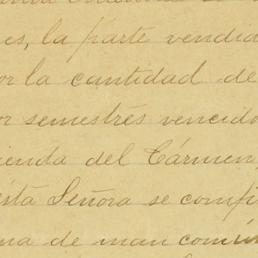 es, la parte vendid
or la cantidad de
or semestres vencido
ienda del Cármen,
esta Señora se comp
ma de man comun